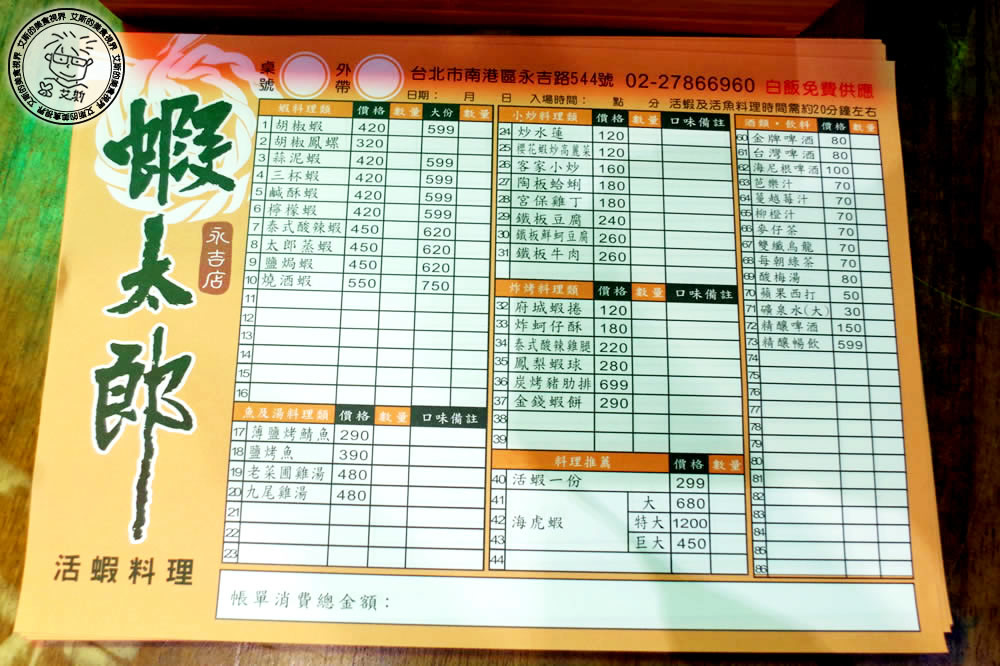 艾斯的美食視界 艾斯的美食視界 艾斯的美食視界
艾斯
蝦太郎
永吉店
活蝦料理
桌號 外帶 台北市南港區永吉路544號 02-27866960 白飯免費供應
日期： 月 日 入場時間： 點 分 活蝦及活魚料理時間需約20分鐘左右
蝦料理類 價格 數量 大份 數量
1 胡椒蝦 420 599
2 胡椒鳳螺 320
3 蒜泥蝦 420 599
4 三杯蝦 420 599
5 鹹酥蝦 420 599
6 檸檬蝦 420 599
7 泰式酸辣蝦 450 620
8 太郎蒸蝦 450 620
9 鹽焗蝦 450 620
10 燒酒蝦 550 750
11
12
13
14
15
16
魚及湯料理類 價格 數量 口味備註
17 薄鹽烤鯖魚 290
18 鹽烤魚 390
19 老菜圃雞湯 480
20 九尾雞湯 480
21
22
23
小炒料理類 價格 數量 口味備註
24 炒水蓮 120
25 櫻花蝦炒高麗菜 120
26 客家小炒 160
27 陶板蛤蜊 180
28 宮保雞丁 180
29 鐵板豆腐 240
30 鐵板鮮蚵豆腐 260
31 鐵板牛肉 260
炸烤料理類 價格 數量 口味備註
32 府城蝦捲 120
33 炸蚵仔酥 180
34 泰式酸辣雞腿 220
35 鳳梨蝦球 280
36 炭烤豬肋排 699
37 金錢蝦餅 290
38
39
料理推薦 價格 數量
40 活蝦一份 299
41 大 680
42 海虎蝦 特大 1200
43 巨大 450
44
酒類・飲料 價格 數量
60 金牌啤酒 80
61 台灣啤酒 80
62 海尼根啤酒 100
63 芭樂汁 70
64 蔓越莓汁 70
65 柳橙汁 70
66 麥仔茶 70
67 雙纖烏龍 70
68 每朝綠茶 70
69 酸梅湯 80
70 蘋果西打 50
71 礦泉水(大) 30
72 精釀啤酒 150
73 精釀暢飲 599
74
75
76
77
78
79
80
81
82
83
84
85
86
帳單消費總金額：